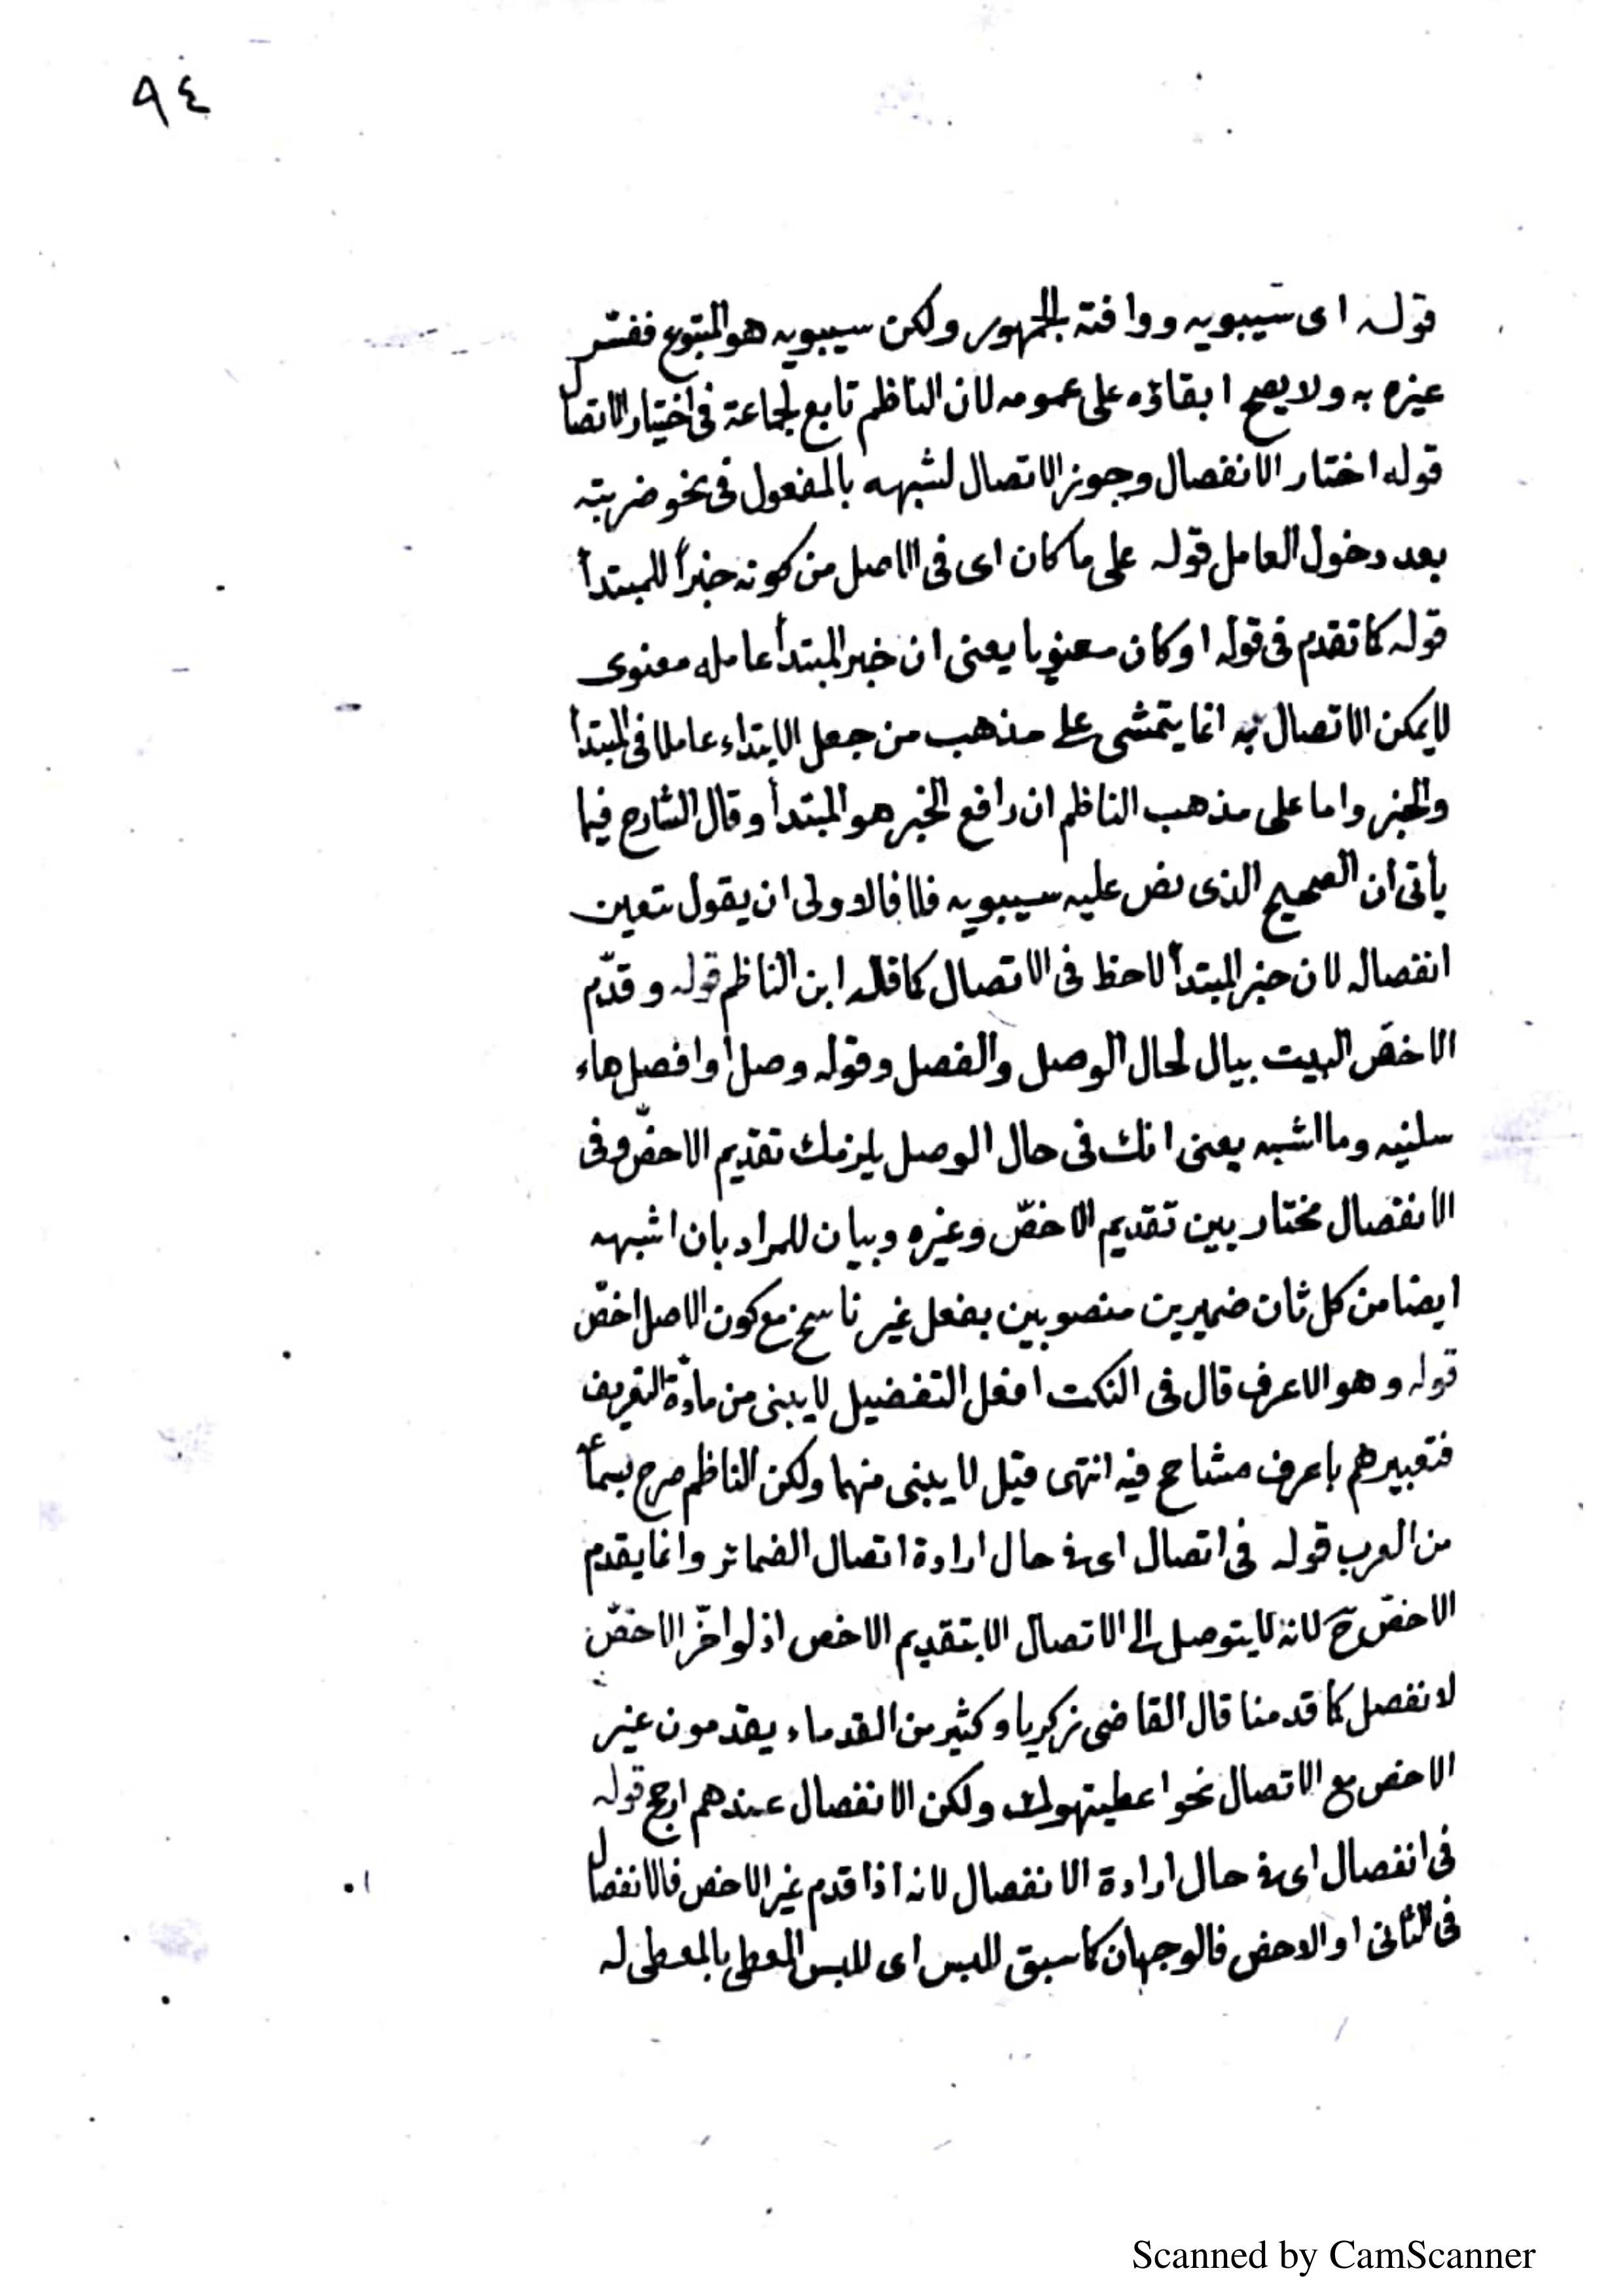 ٩٤
قوله اى سيبويه ووافته الجمهور ولكن سيبويه هو المتبوع ففسّر
عيزه به ولا يصح ابقاؤه على عمومه لان الناظم تابع لجماعة فى اختيار الاتصال
قوله اختار الانفصال وجوز الاتصال لشبهه بالمفعول فى نحو ضربته
بعد دخول العامل قوله على ما كان اى فى الاصل من كونه خبراً للمبتدأ
قوله كما تقدم فى قوله او كان معنويا يعنى ان خبر المبتدأ عامله معنوى
لا يمكن الاتصال به انما يتمشى على مذهب من جعل الابتداء عاملا فى المبتدأ
والخبر واما على مذهب الناظم ان رافع الخبر هو المبتدأ وقال الشارح فيما
يأتى ان الصحيح الذى نص عليه سيبويه فلا فالاولى ان يقول تتعين
انفصاله لان خبر المبتدأ لاحظ فى الاتصال كما قاله ابن الناظم قوله وقدّم
الاخصّ البيت بيال لحال الوصل والفصل وقوله وصل اوافصل هاء
سلنيه وما اشبه يعنى انك فى حال الوصل يلزمك تقديم الاخصّ وفى
الانفصال مختار بين تقديم الاخصّ وغيره وبيان للمراد بان اشبهه
ايضا من كل ثان ضميرين منصوبين بفعل غير ناسخ مع كون الاصل اخصّ
قوله وهو الاعرف قال فى النكت افعل التفضيل لا يبنى من مادّة التعريف
فتعبيرهم باعرف مشاحح فيه انتهى قيل لا يبنى منهما ولكن الناظم صرح بسماعه
من العرب قوله فى اتصال اى فى حال ارادة اتصال الضمائر وانما يقدم
الاخصّ ح لانه لا يتوصل الى الاتصال الا بتقديم الاخص اذ لو اخّر الاخصّ
لانفصل كما قدمنا قال القاضى زكريا وكثير من القدماء يقدمون غير
الاخص مع الاتصال نحو اعطيتهوك ولكن الانفصال عندهم ارجح قوله
فى انفصال اى فى حال ارادة الانفصال لانه اذا قدم غير الاخص فالانفصال
فى الثانى او الاخص فالوجهان كما سبق للبس اى للبس المعطى بالمعطى له
Scanned by CamScanner